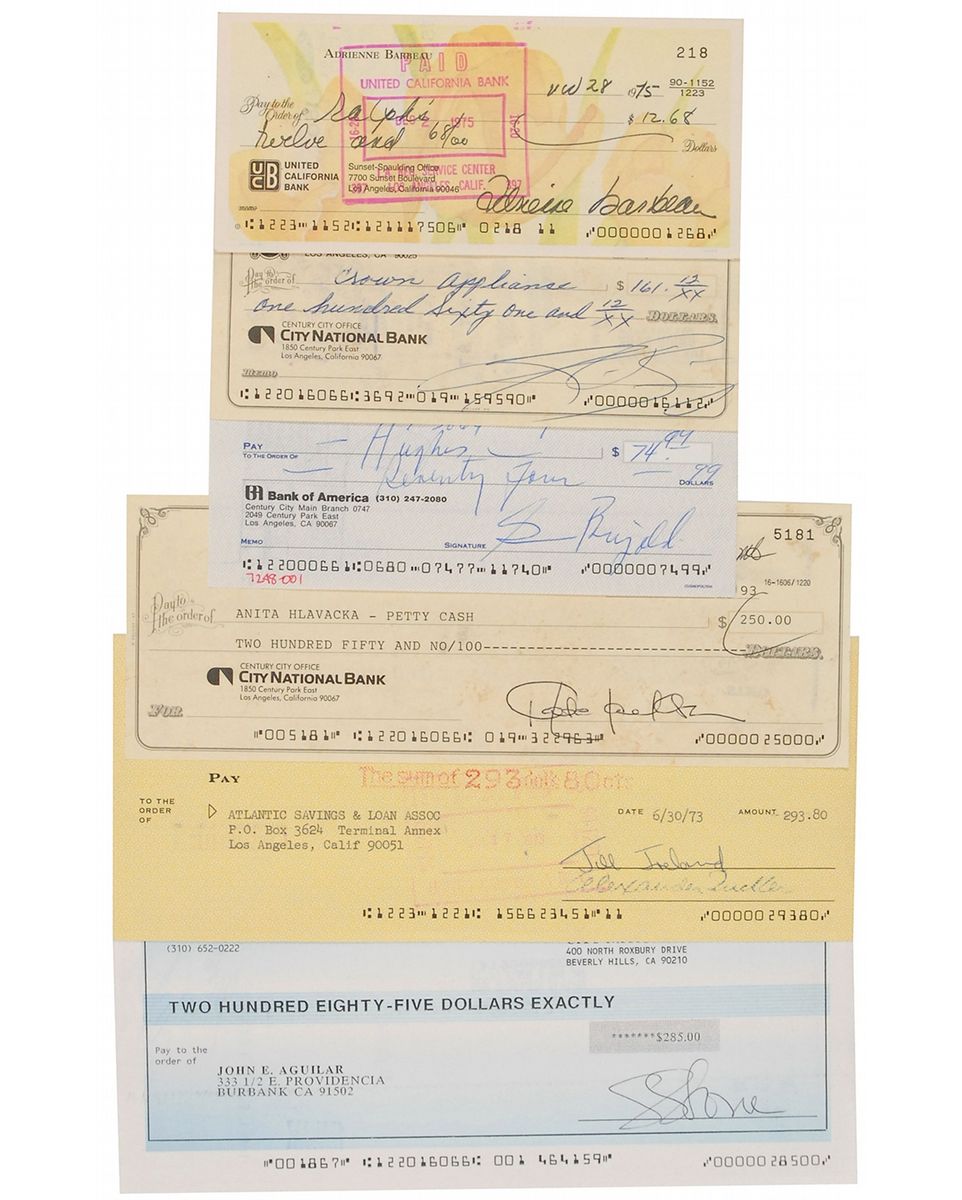 ADRIENNE BARBEAU
218
PAID
UNITED CALIFORNIA BANK
28 1975 90-1152
1223
Pay to the
Order of Ralph's $ 12.68
2 1975
twelve and 68/00 Dollars
UCB UNITED
CALIFORNIA
BANK
Sunset-Spaulding Office
7700 Sunset Boulevard
Los Angeles, California 90046
SERVICE CENTER
LOS ANGELES, CALIF. 397
memo
Adrienne Barbeau
⑆1223⑉1152⑆121117506⑈ 0218 11 ⑇0000001268⑇
LOS ANGELES, CA 90025
Pay to
the order of Crown Appliance $ 161. 12/XX
one hundred Sixty One and 12/XX DOLLARS
CENTURY CITY OFFICE
CITY NATIONAL BANK
1850 Century Park East
Los Angeles, California 90067
MEMO
⑆122016066⑆3692⑉019⑉159590⑈ ⑇0000016112⑇
PAY
TO THE ORDER OF Hughes $ 74.99
Seventy four 99 DOLLARS
Bank of America (310) 247-2080
Century City Main Branch 0747
2049 Century Park East
Los Angeles, CA 90067
MEMO SIGNATURE
⑆122000661⑆0680⑉07477⑉11740⑈ ⑇0000007499⑇
7298-001 COSMOPOLITAN
5181
93 16-1606/1220
Pay to
the order of ANITA HLAVACKA - PETTY CASH $ 250.00
TWO HUNDRED FIFTY AND NO/100-------------------------------- DOLLARS
CENTURY CITY OFFICE
CITY NATIONAL BANK
1850 Century Park East
Los Angeles, California 90067
FOR
⑈005181⑈ ⑆122016066⑆ 019⑉322963⑈ ⑇0000025000⑇
PAY The sum of 293 dols 80 cts
TO THE
ORDER
OF
ATLANTIC SAVINGS & LOAN ASSOC
P.O. Box 3624 Terminal Annex
Los Angeles, Calif 90051
DATE 6/30/73 AMOUNT 293.80
Jill Ireland
⑆1223⑉1221⑆ 156623451⑈11 ⑇0000029380⑇
(310) 652-0222
400 NORTH ROXBURY DRIVE
BEVERLY HILLS, CA 90210
TWO HUNDRED EIGHTY-FIVE DOLLARS EXACTLY
*******$285.00
Pay to the
order of
JOHN E. AGUILAR
333 1/2 E. PROVIDENCIA
BURBANK CA 91502
S Stone
⑈001867⑈ ⑆122016066⑆ 001 464159⑈ ⑇0000028500⑇